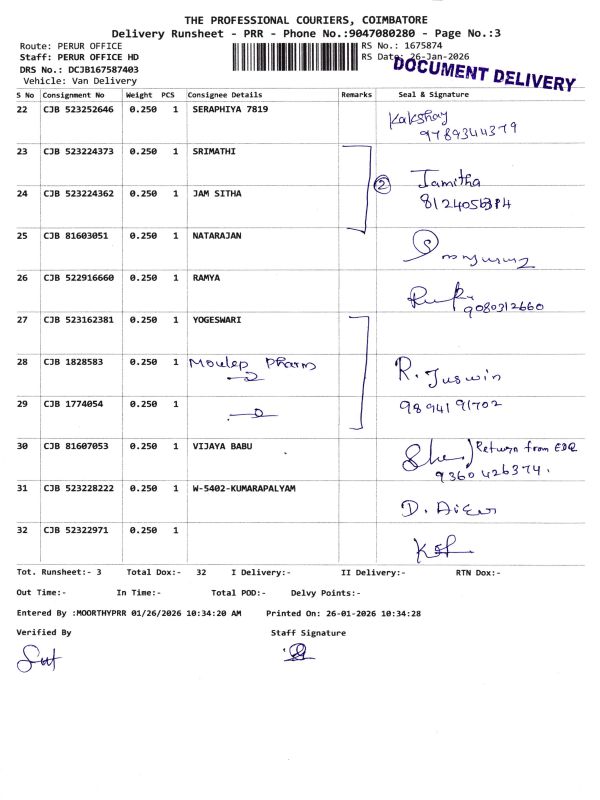 THE PROFESSIONAL COURIERS, COIMBATORE
Delivery Runsheet - PRR - Phone No.:9047080280 - Page No.:3
Route: PERUR OFFICE
RS No.: 1675874
Staff: PERUR OFFICE HD
RS Date: 26-Jan-2026
DRS No.: DCJB167587403
Vehicle: Van Delivery
DOCUMENT DELIVERY
S No Consignment No Weight PCS Consignee Details Remarks Seal & Signature
22 CJB 523252646 0.250 1 SERAPHIYA 7819 Kakshay
9789344379
23 CJB 523224373 0.250 1 SRIMATHI
② Jamitha
24 CJB 523224362 0.250 1 JAM SITHA
25 CJB 81603051 0.250 1 NATARAJAN
26 CJB 522916660 0.250 1 RAMYA
9080312660
27 CJB 523162381 0.250 1 YOGESWARI
28 CJB 1828583 0.250 1 Moulep Pharm R. Juswin
29 CJB 1774054 0.250 1 98941 91702
30 CJB 81607053 0.250 1 VIJAYA BABU Return from
9360426374.
31 CJB 523228222 0.250 1 W-5402-KUMARAPALYAM
32 CJB 52322971 0.250 1
Tot. Runsheet:- 3 Total Dox:- 32 I Delivery:- II Delivery:- RTN Dox:-
Out Time:- In Time:- Total POD:- Delvy Points:-
Entered By :MOORTHYPRR 01/26/2026 10:34:20 AM Printed On: 26-01-2026 10:34:28
Verified By Staff Signature